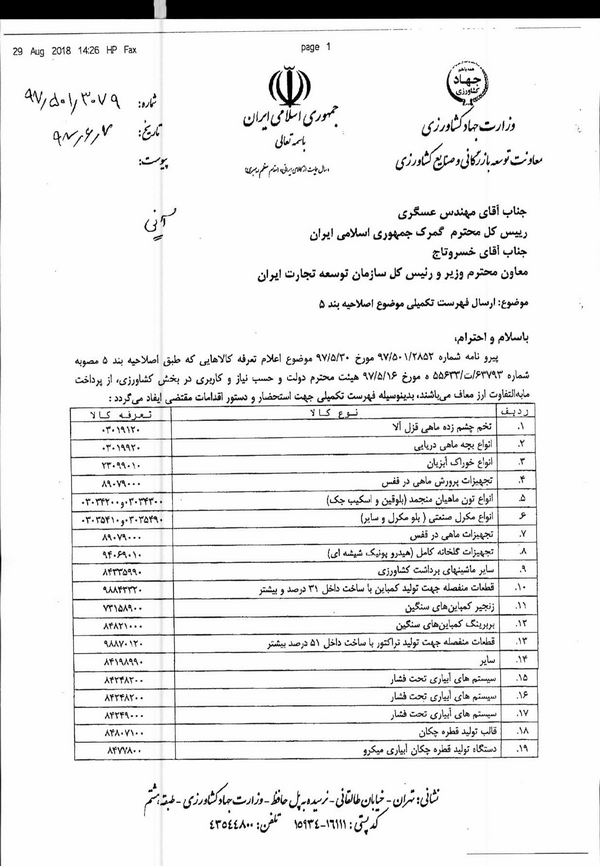 29 Aug 2018 14:26 HP Fax page 1
همه با هم
جهاد
کشاورزی
وزارت جهاد کشاورزی
معاونت توسعه بازرگانی و صنایع کشاورزی
جمهوری اسلامی ایران
باسمه تعالی
شماره: ۹۷/۵۰۱/۳۰۷۹
تاریخ: ۹۷/۶/۷
پیوست:
آنی
جناب آقای مهندس عسگری
رییس کل محترم گمرک جمهوری اسلامی ایران
جناب آقای خسروتاج
معاون محترم وزیر و رئیس کل سازمان توسعه تجارت ایران
موضوع: ارسال فهرست تکمیلی موضوع اصلاحیه بند ۵
باسلام و احترام،
پیرو نامه شماره ۹۷/۵۰۱/۲۸۵۲ مورخ ۹۷/۵/۳۰ موضوع اعلام تعرفه کالاهایی که طبق اصلاحیه بند ۵ مصوبه
شماره ۶۳۷۹۳/ت۵۵۶۳۳ ه مورخ ۹۷/۵/۱۶ هیئت محترم دولت و حسب نیاز و کاربری در بخش کشاورزی، از پرداخت
مابه‌التفاوت ارز معاف می‌باشند، بدینوسیله فهرست تکمیلی جهت استحضار و دستور اقدامات مقتضی ایفاد می‌گردد:
ردیف نوع کالا تعرفه کالا
۱. تخم چشم زده ماهی قزل آلا ۰۳۰۱۹۱۲۰
۲. انواع بچه ماهی دریایی ۰۳۰۱۹۹۲۰
۳. انواع خوراک آبزیان ۲۳۰۹۹۰۱۰
۴. تجهیزات پرورش ماهی در قفس ۸۹۰۷۹۰۰۰
۵. انواع تون ماهیان منجمد (یلوفین و اسکیپ جک) ۰۳۰۳۴۳۰۰و۰۳۰۳۴۲۰۰
۶. انواع مکرل صنعتی ( بلو مکرل و سایر) ۰۳۰۳۵۴۹۰و۰۳۰۳۵۴۱۰
۷. تجهیزات ماهی در قفس ۸۹۰۷۹۰۰۰
۸. تجهیزات گلخانه کامل (هیدرو پونیک شیشه ای) ۹۴۰۶۹۰۱۰
۹. سایر ماشینهای برداشت کشاورزی ۸۴۳۳۵۹۹۰
۱۰. قطعات منفصله جهت تولید کمباین با ساخت داخل ۳۱ درصد و بیشتر ۹۸۸۴۳۳۲۰
۱۱. زنجیر کمباین‌های سنگین ۷۳۱۵۸۹۰۰
۱۲. بربرینگ کمباین‌های سنگین ۸۴۸۲۱۰۰۰
۱۳. قطعات منفصله جهت تولید تراکتور با ساخت داخل ۵۱ درصد بیشتر ۹۸۸۷۰۱۲۰
۱۴. سایر ۸۴۱۹۸۹۹۰
۱۵. سیستم های آبیاری تحت فشار ۸۴۲۴۸۲۰۰
۱۶. سیستم های آبیاری تحت فشار ۸۴۲۴۸۲۰۰
۱۷. سیستم های آبیاری تحت فشار ۸۴۲۴۹۰۰۰
۱۸. قالب تولید قطره چکان ۸۴۸۰۷۱۰۰
۱۹. دستگاه تولید قطره چکان آبیاری میکرو ۸۴۷۷۸۰۰۰
نشانی: تهران - خیابان طالقانی - نرسیده به پل حافظ - وزارت جهاد کشاورزی - طبقه هشتم
کد پستی: ۱۶۱۱۱-۱۵۹۳۴ تلفن: ۴۳۵۴۴۸۰۰